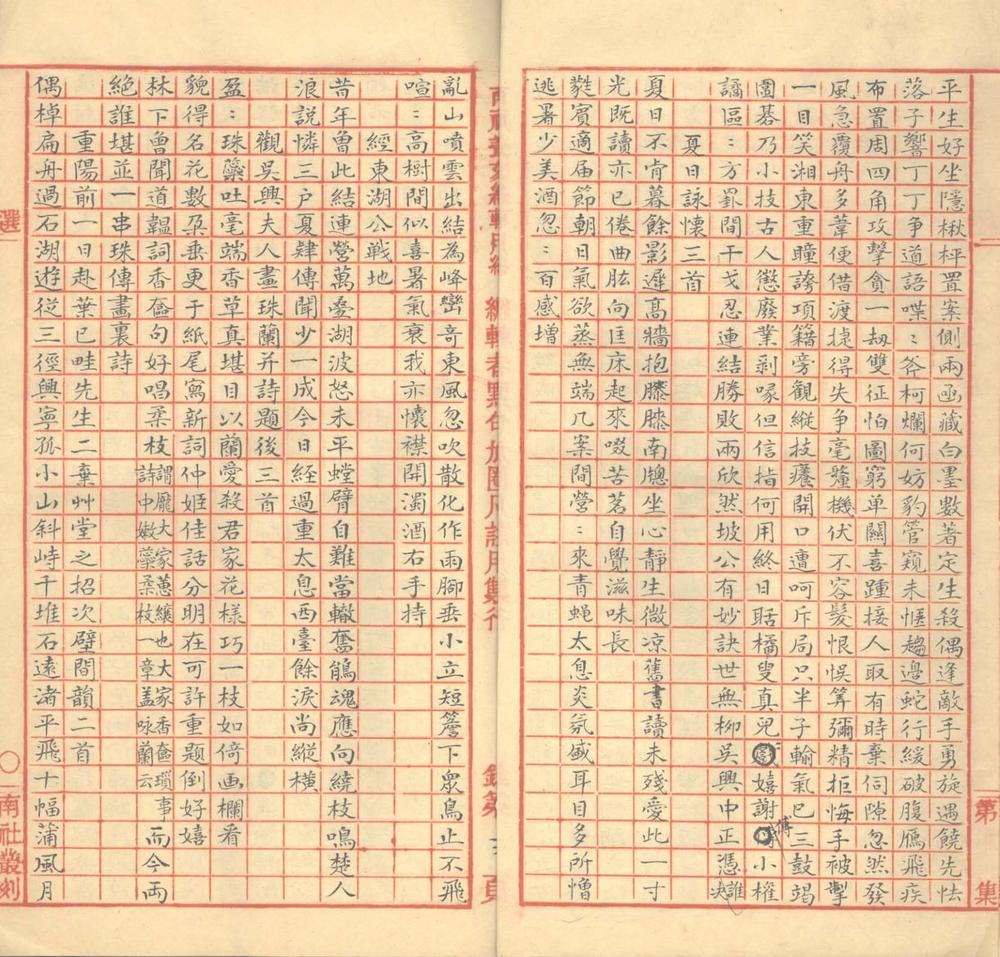 第 集
平生好坐隱楸枰置案側兩函藏白墨數著定生殺偶逢敵手勇旋遇饒先怯
落子響丁丁爭道語喋〻斧柯爛何妨豹管窺未愜趨邊蛇行緩破腹鴈飛疾
布置周四角攻擊貪一刼雙征怕圖窮单關喜踵接人取有時棄伺隙忽然發
風急覆舟多葦便借渡捷得失争毫釐機伏不容髮恨悞筭彌精拒悔手被掣
一目笑湘東重瞳誇項籍旁觀縱技癢開口遭呵斥局只半子輸氣已三鼓竭
圍棊乃小技古人懲廢業剥啄但信指何用終日聒橘叟真兒嬉謝傅小榷
譎區〻方罫間干戈忍連結勝敗兩欣然坡公有妙訣世無柳吳興中正憑誰決
夏日詠懷三首
夏日不肯暮餘影遲高牆抱膝膝南牕坐心靜生微凉舊書讀未殘愛此一寸
光既讀亦已倦曲肱向匡床起來啜苦茗自覺滋味長
蕤賓適届節朝日氣欲蒸無端几案間營〻來青蝇太息炎氛盛耳目多所憎
逃暑少美酒忽〻百感增
亂山噴雲出結為峰巒奇東風忽吹散化作雨腳垂小立短簷下衆鳥止不飛
喧〻高樹間似喜暑氣衰我亦懷襟開濁酒右手持
經東湖公戰地
昔年曾此結連營萬疊湖波怒未平螳臂自難當轍奮鵑魂應向繞枝鳴楚人
浪説憐三户夏肄傳聞少一成今日經過重太息西臺餘淚尚縱横
觀吳興夫人畫珠蘭并詩題後三首
盈〻珠蘂吐毫端香草真堪目以蘭愛殺君家花様巧一枝如倚画欄看
貌得名花數朶垂更于紙尾寫新詞仲姬佳話分明在可許重题倒好嬉
林下曾聞道韞詞香奩句好唱柔枝謂龐大家蕙纕也大家香奩瑣事詩中嫩蘂柔枝一章盖咏蘭云而今両
絕誰堪並一串珠傳畫裏詩
重陽前一日赴葉巳畦先生二棄艸堂之招次壁間韻二首
偶棹扁舟過石湖遊從三徑興寧孤小山斜峙千堆石遠渚平飛十幅蒲風月
選
南社叢刻